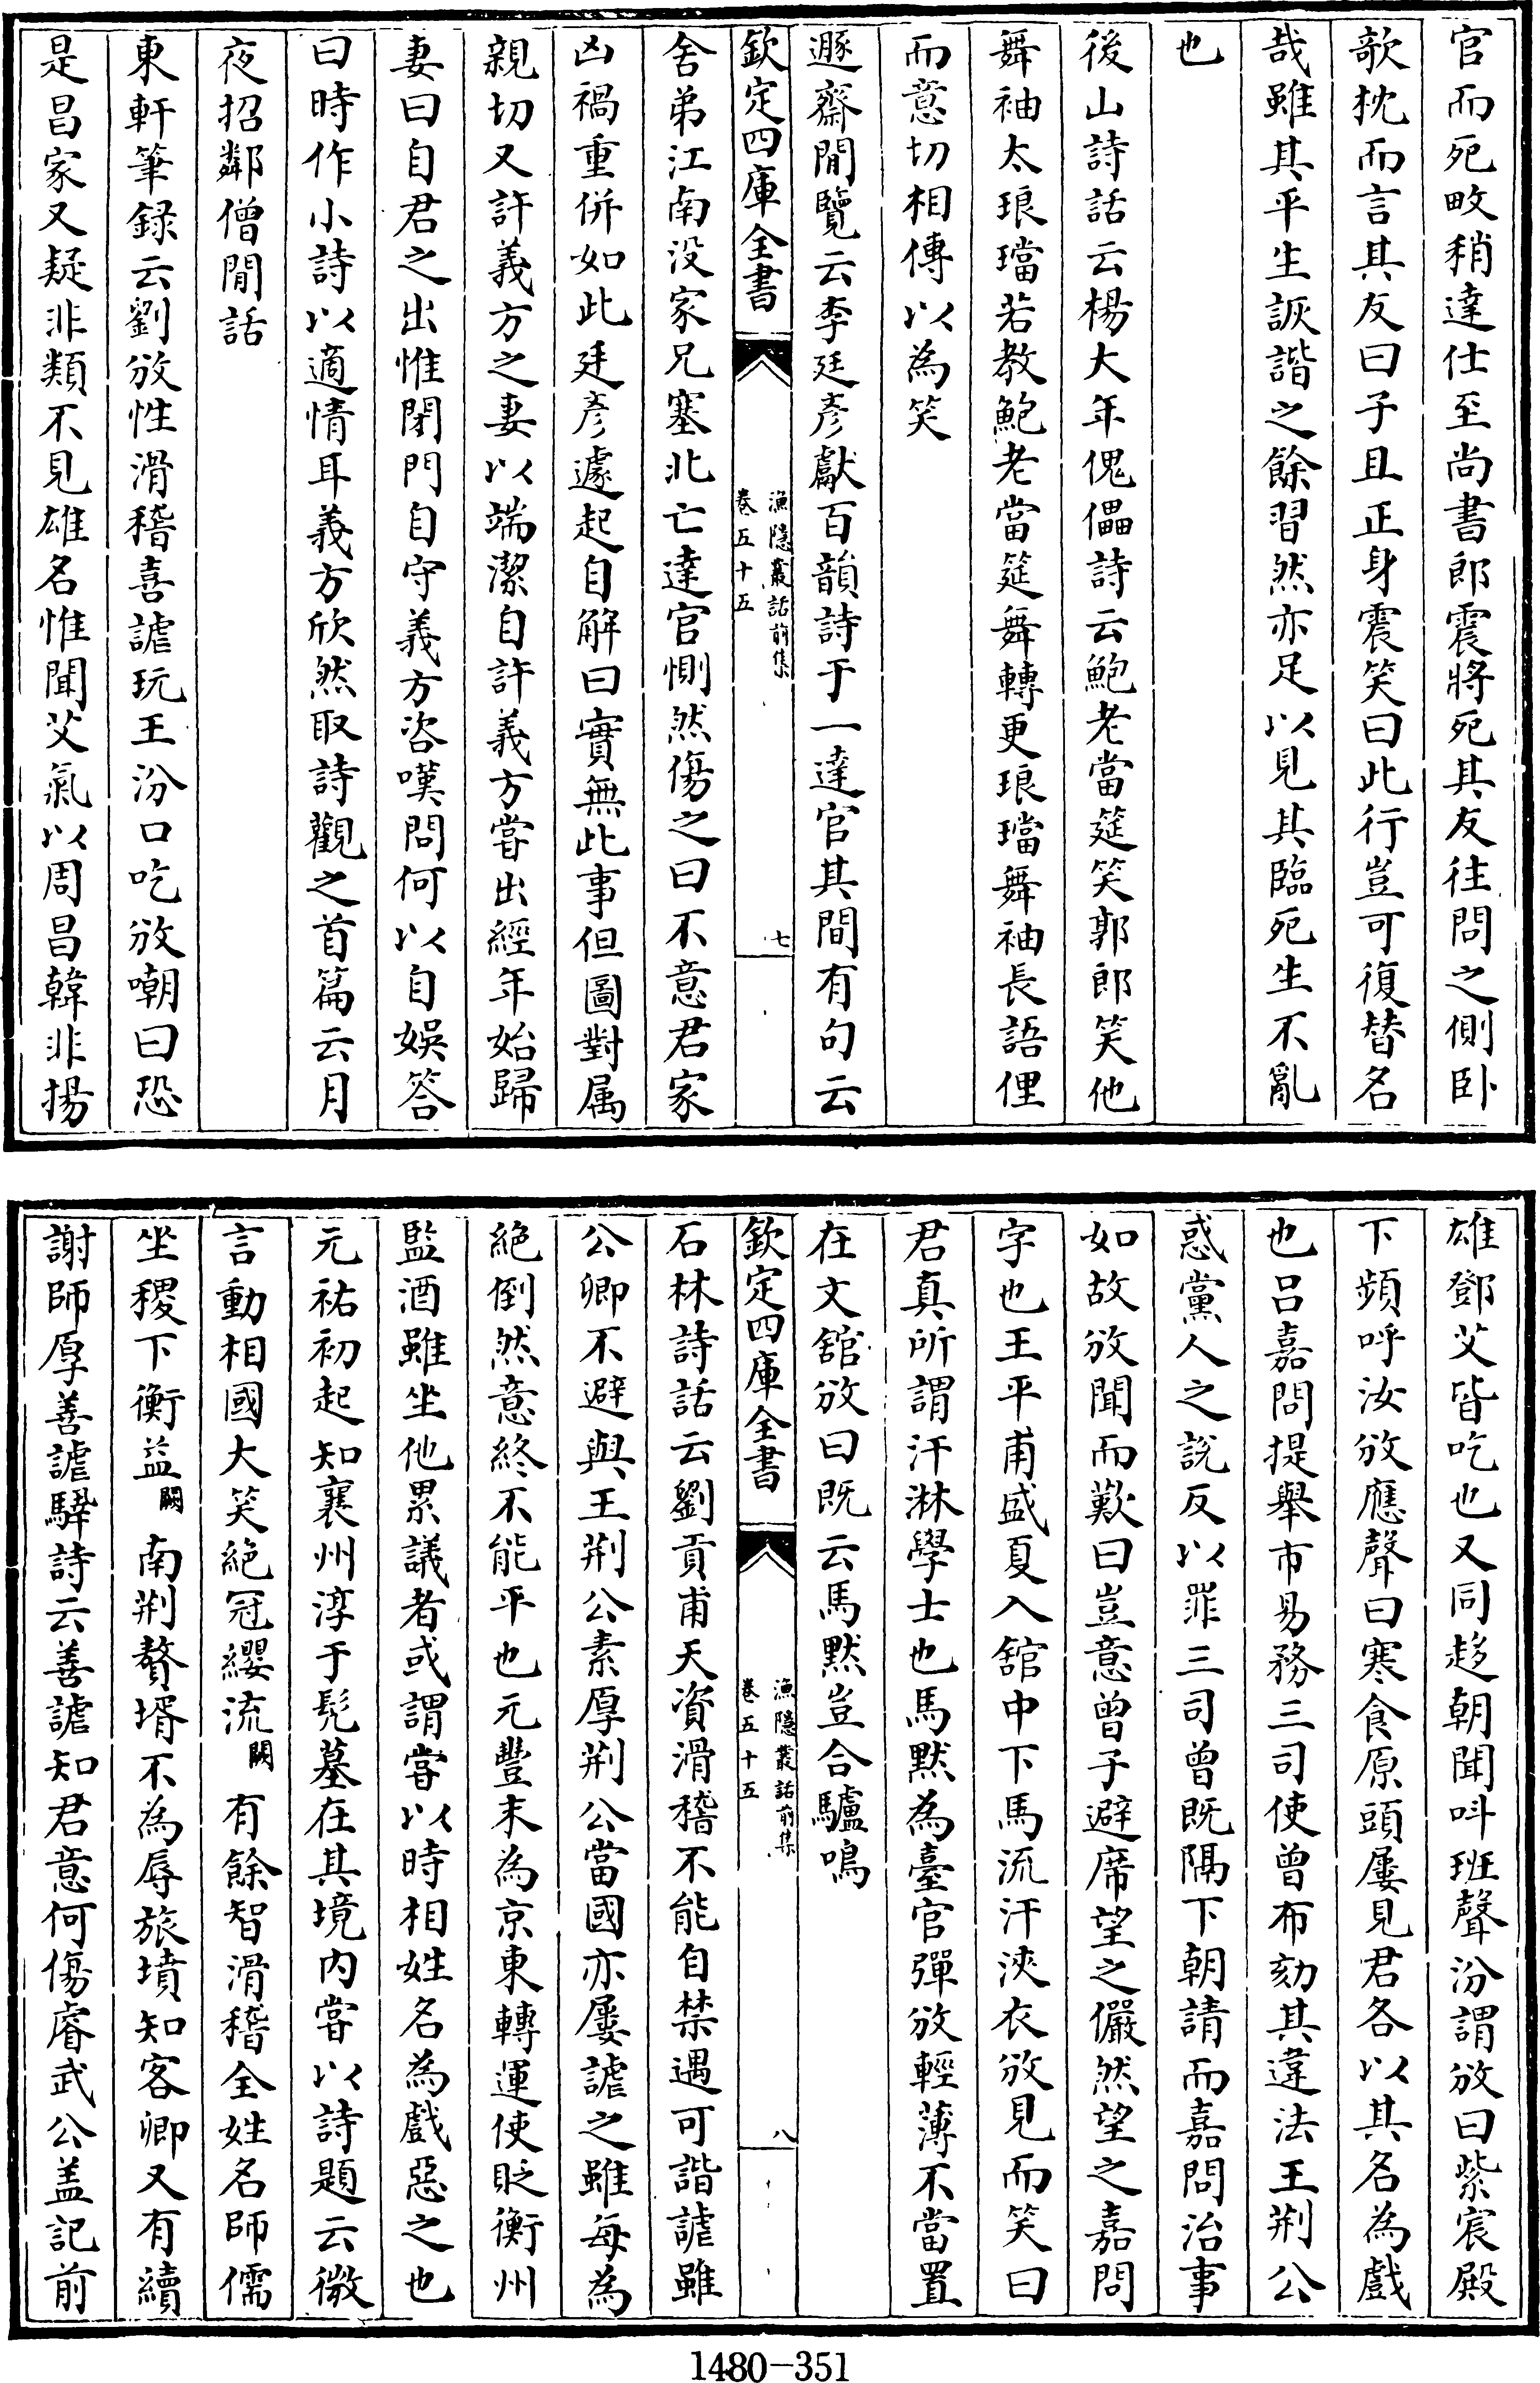 官而死畋稍達仕至尚書郎震將死其友往問之側卧
欹枕而言其友曰子且正身震笑曰此行豈可復替名
哉雖其平生詼諧之餘習然亦足以見其臨死生不亂
也
後山詩話云楊大年傀儡詩云鮑老當筵笑郭郎笑他
舞袖太琅璫若教鮑老當筵舞轉更琅璫舞袖長語俚
而意切相傳以為笑
遯齋閒覽云李廷彥獻百韻詩于一達官其間有句云
欽定四庫全書
漁隱叢話前集
卷五十五
七
舍弟江南没家兄塞北亡達官惻然傷之曰不意君家
凶禍重併如此廷彥遽起自解曰實無此事但圖對属
親切又許義方之妻以端潔自許義方嘗出經年始歸
妻曰自君之出惟閉門自守義方咨嘆問何以自娱答
曰時作小詩以適情耳義方欣然取詩觀之首篇云月
夜招鄰僧閒話
東軒筆録云劉攽性滑稽喜謔玩王汾口吃攽嘲曰恐
是昌家又疑非類不見雄名惟聞艾氣以周昌韓非揚
雄鄧艾皆吃也又同趍朝聞呌班聲汾謂攽曰紫宸殿
下頻呼汝攽應聲曰寒食原頭屢見君各以其名為戲
也吕嘉問提舉市易務三司使曾布劾其違法王荆公
惑黨人之説反以罪三司曾既隔下朝請而嘉問治事
如故攽聞而歎曰豈意曾子避席望之儼然望之嘉問
字也王平甫盛夏入舘中下馬流汗浹衣攽見而笑曰
君真所謂汗淋學士也馬默為臺官彈攽輕薄不當置
在文舘攽曰既云馬默豈合驢鳴
欽定四庫全書
漁隱叢話前集
卷五十五
八
石林詩話云劉貢甫天資滑稽不能自禁遇可諧謔雖
公卿不避與王荆公素厚荆公當國亦屢謔之雖每為
絶倒然意終不能平也元豐末為京東轉運使貶衡州
監酒雖坐他累議者或謂嘗以時相姓名為戲惡之也
元祐初起知襄州淳于髠墓在其境内嘗以詩題云微
言動相國大笑絶冠纓流闕有餘智滑稽全姓名師儒
坐稷下衡益闕南荆贅壻不為辱旅墳知客卿又有續
謝師厚善謔驛詩云善謔知君意何傷睿武公盖記前
1480-351